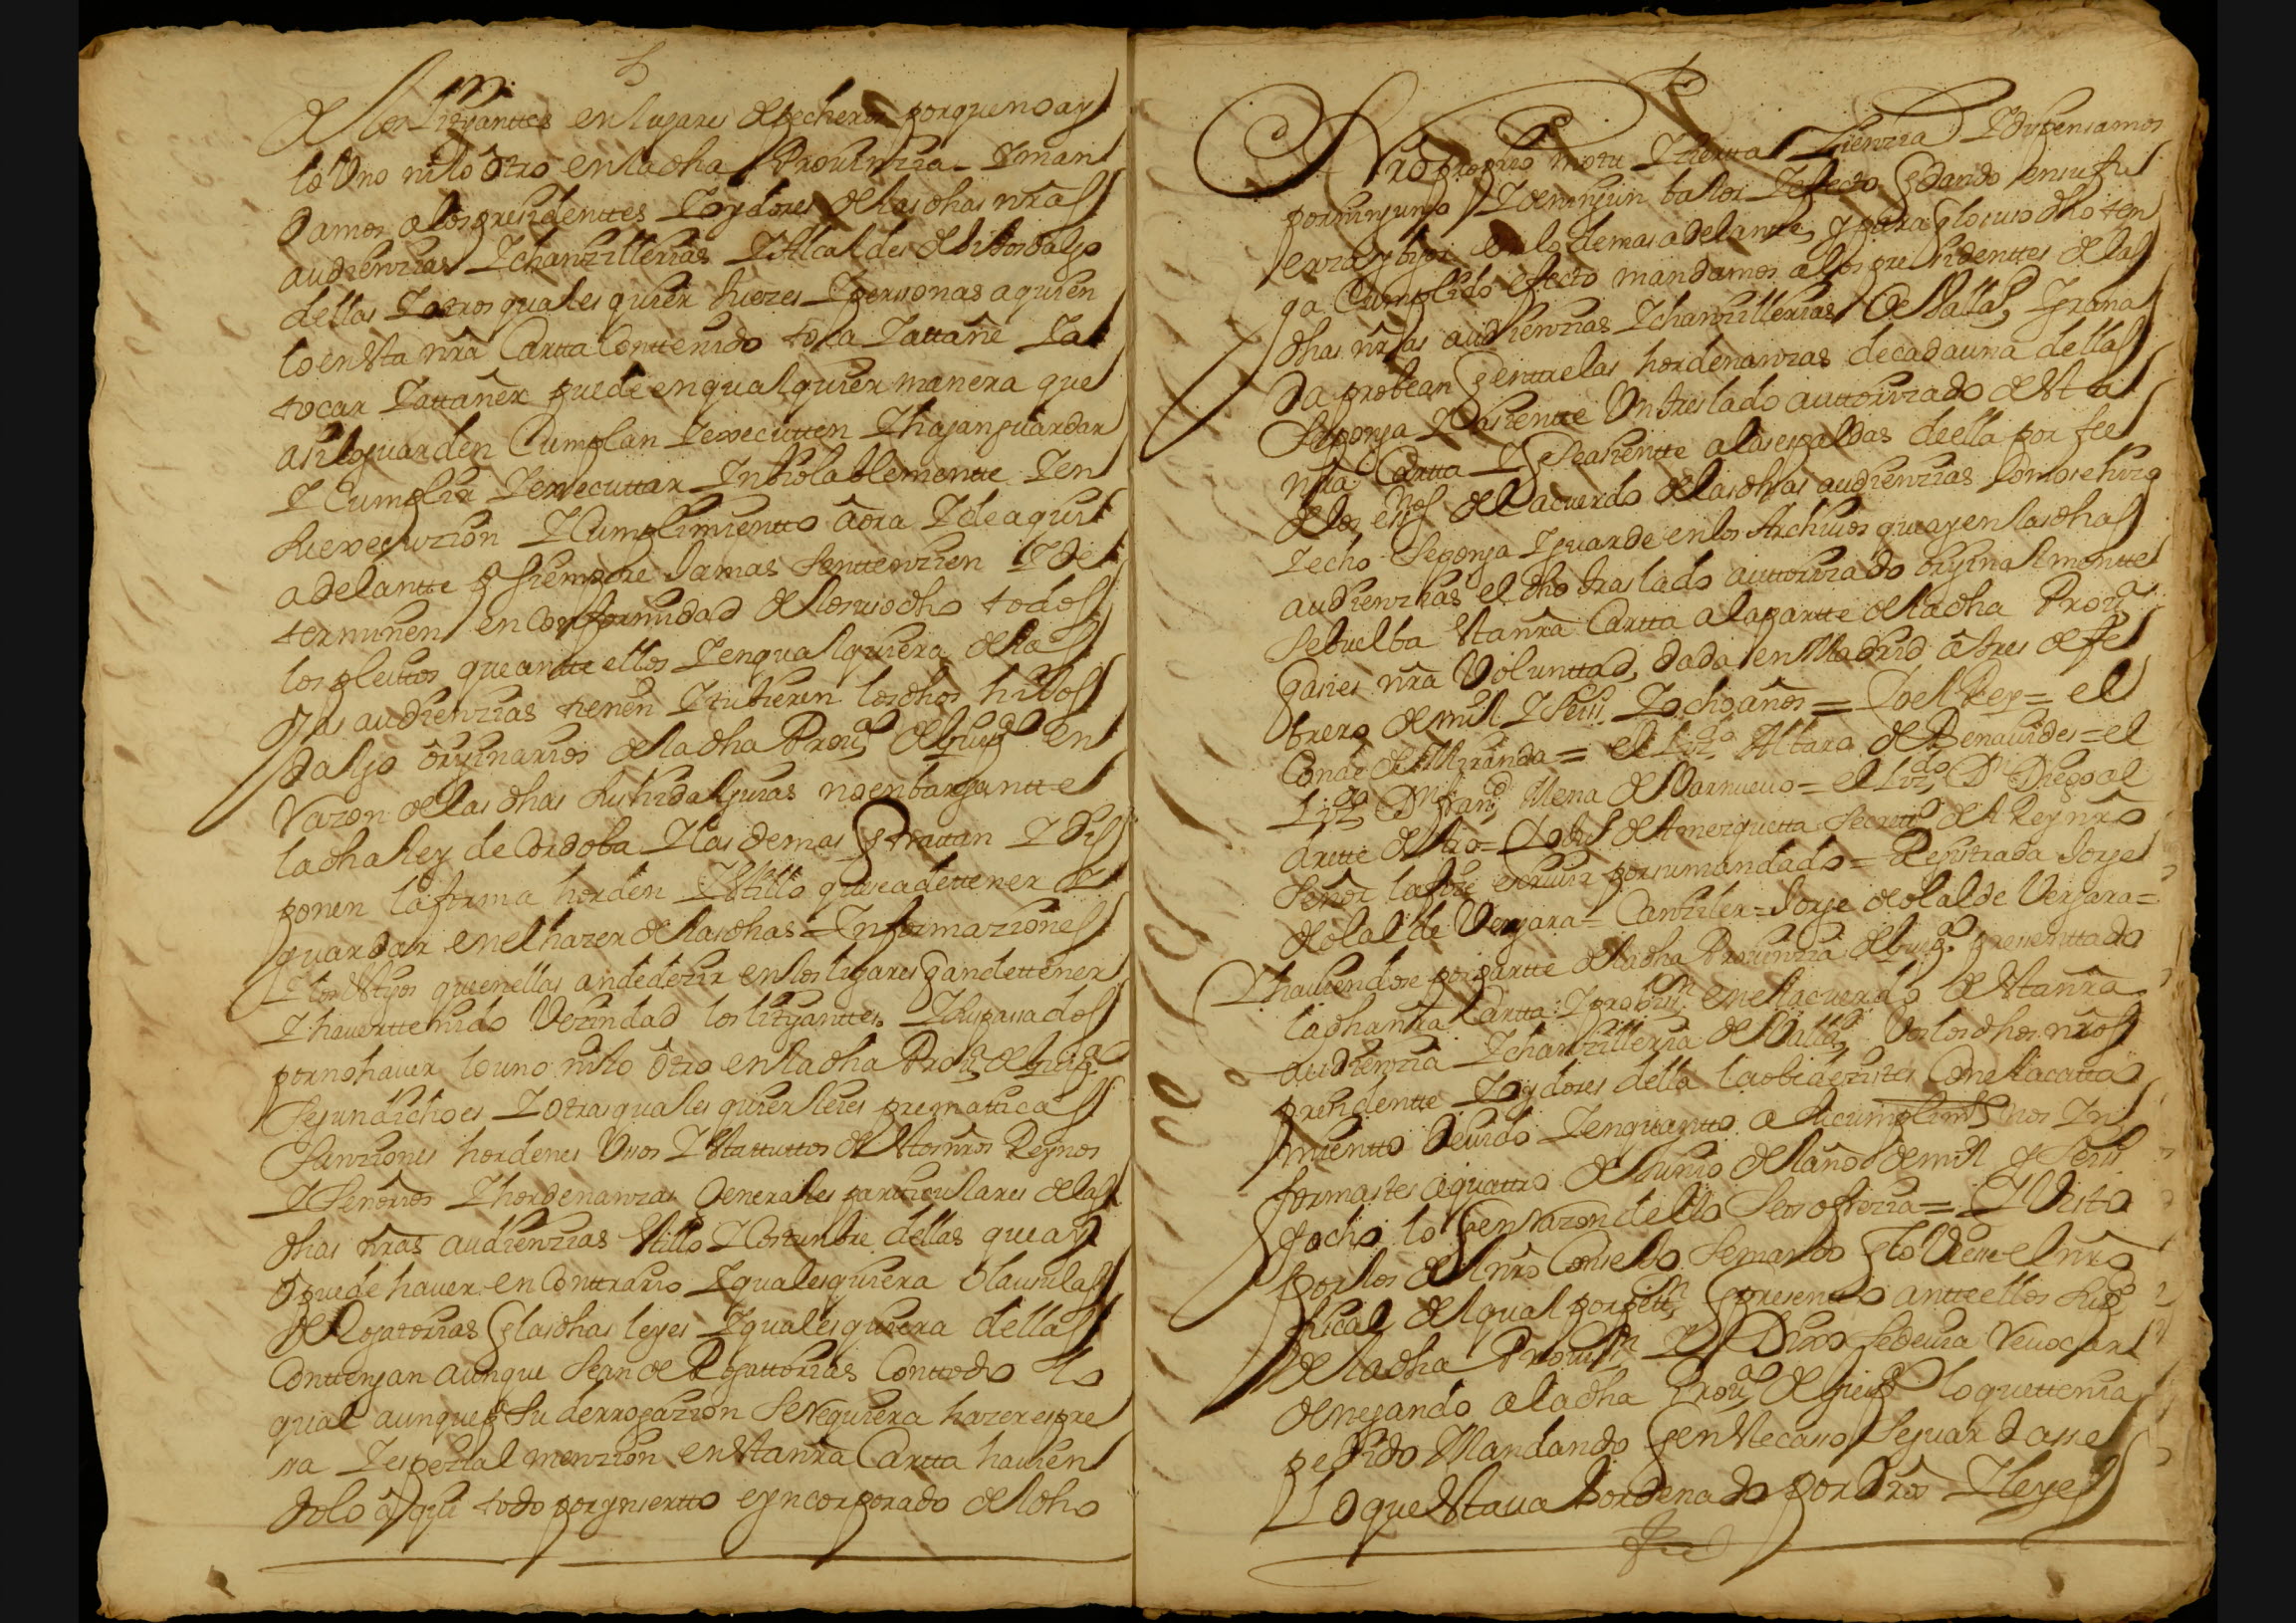 de los litigantes en lugares de pecheros porque no ay
lo Uno ni lo otro en la dha Prouinzia Y man
damos a los presidenttes Y oydores de las dhas nras
audienzias Y chanzillerias Y Alcaldes de hijosdalgo
dellas Y otros quales quier Juezes Y personas a quien
lo en Esta nra Cartta Conttenido toca Y attañe Y a
tocar Y attañer puede en qual quier manera que
asi lo guarden Cumplan Y executten Y hagan guardar
Y Cumplir Y executtar Ynbiolablementte Y en
su execuzion Y Cumplimientto aora Y de aqui
adelantte p.ª siempre Jamas senttenzien Y de
terminen en Conformidad de lo suso dho todos
los pleittos que antte ellos Y en qualquiera de las
dhas audienzias tienen Y tubieren los dhos hijos
dalgo originarios de la dha Prouª de Guipª en
Razon de las dhas sus hidalguias no enbargantte
la dha ley de Cordoba Y las demas q trattan Y dis
ponen la forma horden Y Estillo que se a de ttener Y
guardar en el hazer de las dhas = Ynformaziones
Y los testigos que en ellas an de dezir en los lugares q an de ttener
Y hauer ttenido Vezindad los litigantes Y sus pasados
por no hauer lo uno ni lo otro en la dha Prouª de Guipª
segun dicho es Y otras quales quier leies prematticas
sanziones hordenes Usos Y Estattuttos de Estos nros Reynos
Y señorios Y hordenanzas Generales particulares de las
dhas nras audienzias Estillo Y Costumbre dellas que ay
o puede hauer en Conttrario Y qualesquiera Clausulas
deRogatorias q las dhas leyes Y qualesquiera dellas
Conttengan aunque sean deRogattorias Con ttodo lo
qual aunque p.ª su derrogazion se Requiera hazer espre
sa Y espezial menzion en Esta nra Cartta hauien
dolo aqui todo por ynsertto e yncorporado de el dho
Nro proprio motu Y zierta Zienzia Y dispensamos
por ninguno Y de ningun balor Y efecto q dando en su fu
erza y bigor en lo demas adelantte, y para q lo suso dho ten
ga Cumplido efecto mandamos a los presidenttes de las
dhas nras audienzias Y chanzillerias de Vallid, Y grana
da probean q entre las hordenanzas de cada una dellas
se ponga Y asientte Un treslado auttorizado de Esta
nra Cartta Y q se asientte a las espaldas de ella por fee
de los esnos del acuerdo de las dhas audienzias Como se hizo
Y echo se ponga Y guarde en los Archiuos que ay en las dhas
audienzias el dho traslado auttorizado orijinalmentte
se buelba Esta nra Cartta a la partte de la dha Prouª
q asi es nra Voluntad, dada en Madrid a tres de fe
brero de mil Y seisº Y ocho años = Yo el Rey = el
Conde de Miranda = el Lizdo Albaro de Benauides = el
Lizdo Dn franco Mena de Barnueuo = el Lizdo Dn Diego al
derette de Aro = Yo de Amezquetta Secrettº del Rey nro
Señor la fize escriuir por su mandado = Registrada Jorge
de olaal de Vergara = Canziler = Jorge de olalde Vergara =
Y hauiendose por partte de la dha Prouinzia de Guipª presenttado
la dha nra Cartta Y probisn en el acuerdo de Esta nra
audienzia Y chanzilleria de Vallid, Vos los dhos nros
presidentte Y oydores della la obedezistes Con el acatta
mientto deuido Y en quantto a su cumplimº nos Yn
formastes a quattro de Junio del año de mil y seisº
y ocho lo q en Razon de ello se os ofrezia = Y Visto
por los del nro Consejo se mando q lo Viese el nro
fiscal el qual por pettn q presento antte ellos supª
de la dha Prouisn Y Dixo se deuia Reuocar
denegando a la dha Prouª de Guipª lo que ttenia
pedido Mandando q en Este caso se guardasse
Lo que Estaua hordenado por dros Y leyes